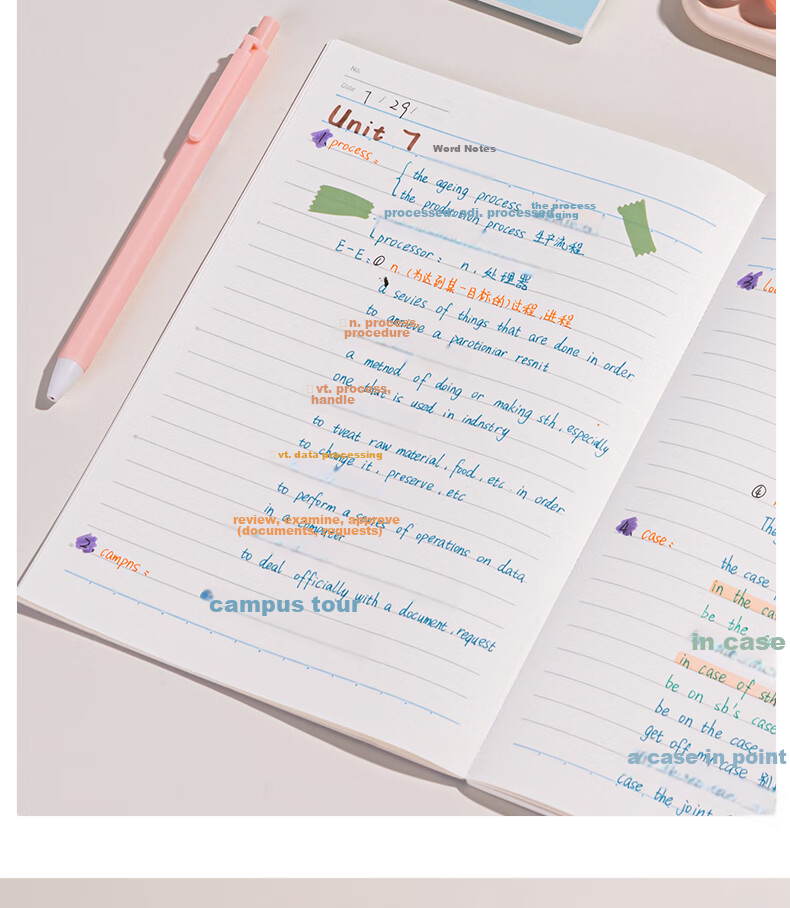 No.
Date 7 / 29 /
Unit 7
Word Notes
1. process:
the ageing process
the process
of aging
the prodnotion process 生产流程
processed: adj. processed
processor: n. 处理器
E-E: ① n. (为达到某一目标的) 过程, 进程
a sevies of things that are done in order
to amieve a parotioniar resnit
n. process,
procedure
a metnod of doing or making sth, especially
one that is used in indnstry
vt. process,
handle
to tveat raw material, food, etc. in order
to change it, preserve, etc
vt. data processing
to perform a seuts of operations on data
in a compnter
review, examine, approve
(documents, requests)
to deal officially with a document, request
2. campns:
campus tour
3. loc
④
The
4. case:
the case
in the ca
be the
in case
in case of sth
be on sb's case
be on the case
get off my case 别
a case in point
case, the joint